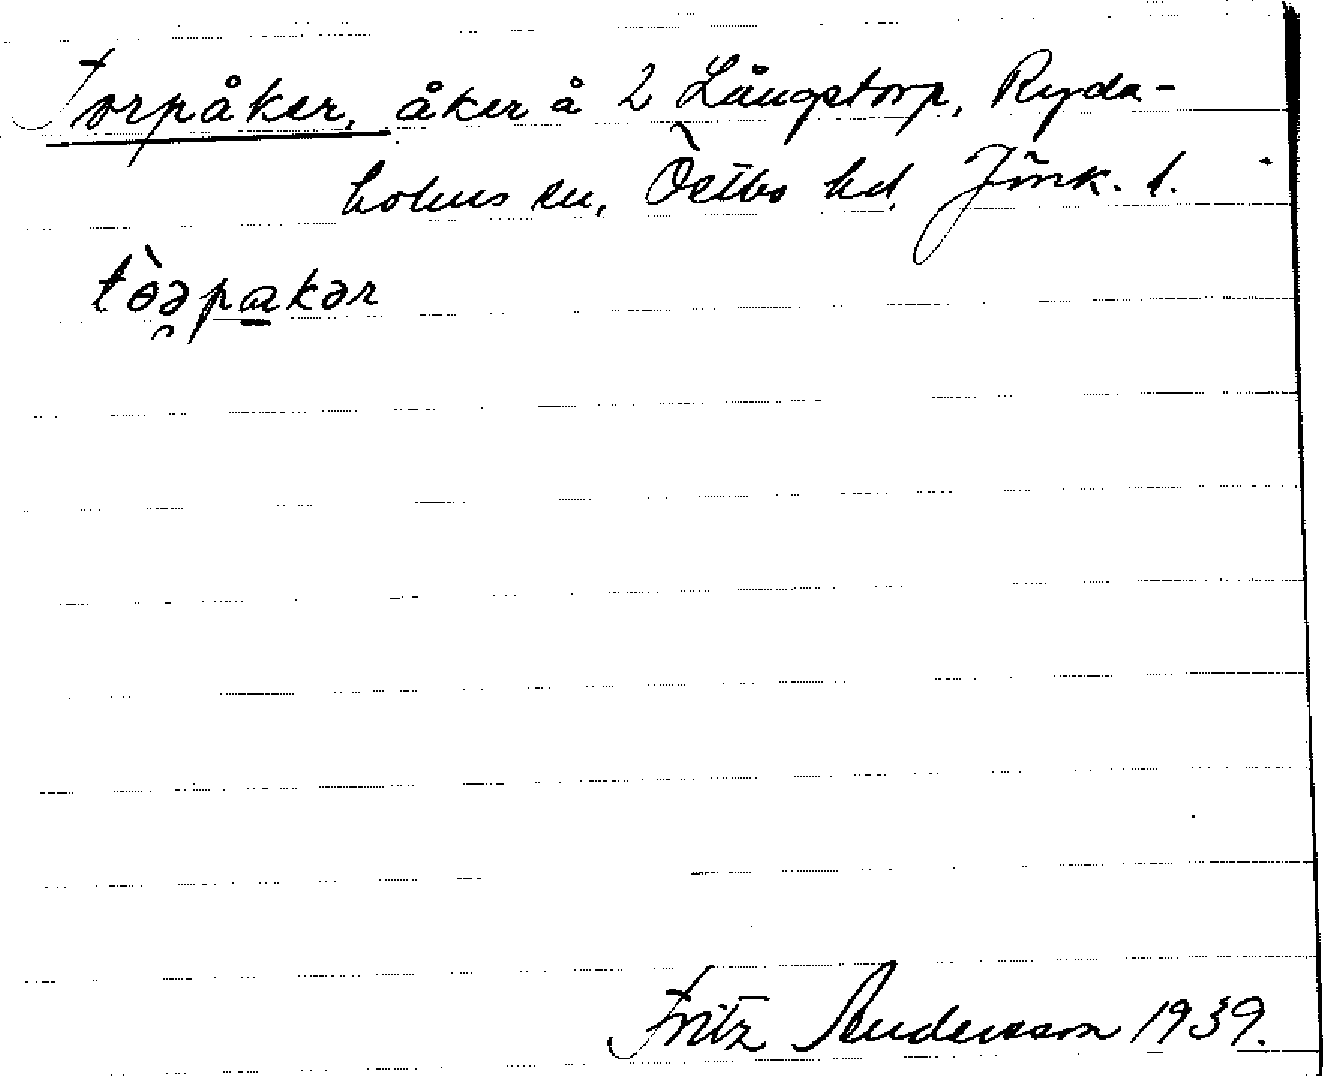 Torpåker, åker å 2 Långstorp, Ryda-
holms sn, Östbo hd. Jönk. l.
tòə̯pa̱kər
Fritz Anderson 1939.